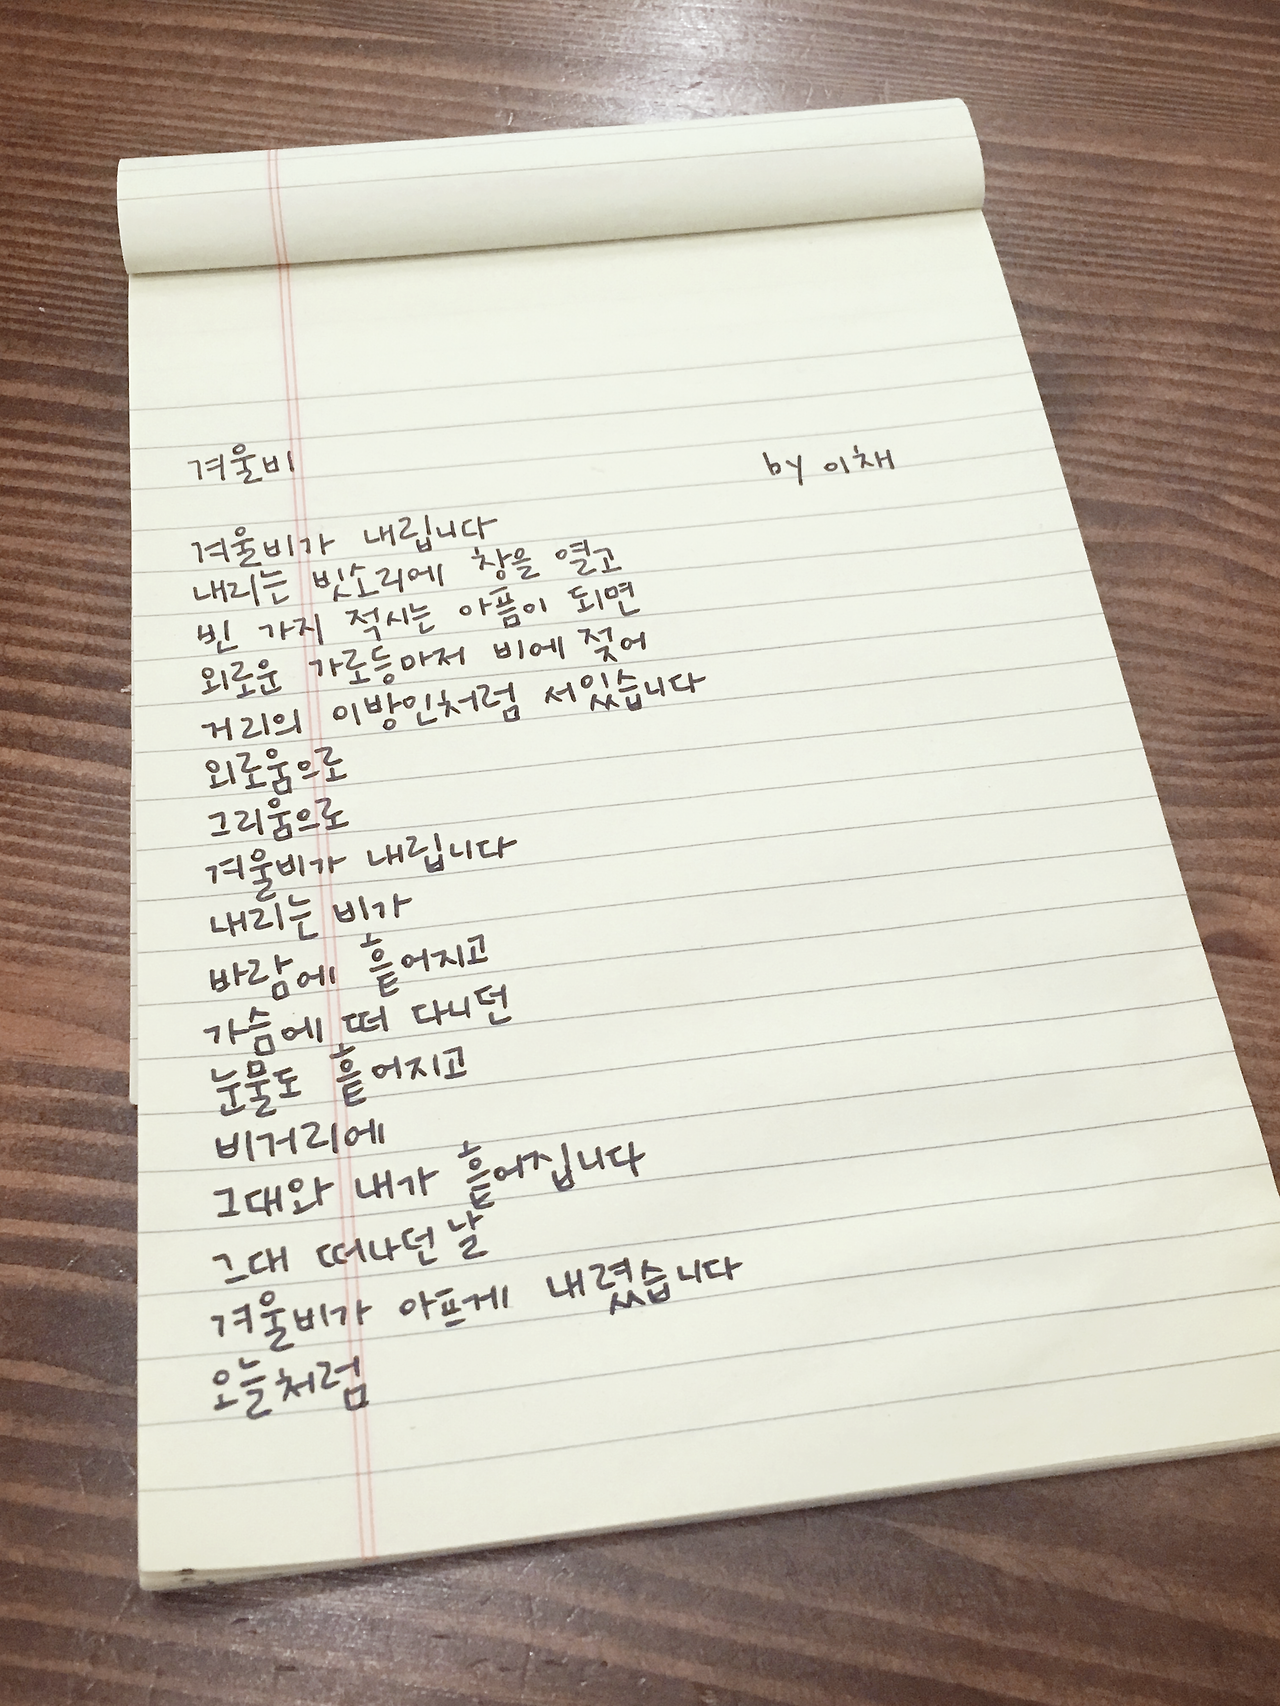 겨울비 by 이채
겨울비가 내립니다
내리는 빗소리에 창을 열고
빈 가지 적시는 아픔이 되면
외로운 가로등마저 비에 젖어
거리의 이방인처럼 서있습니다
외로움으로
그리움으로
겨울비가 내립니다
내리는 비가
바람에 흩어지고
가슴에 떠 다니던
눈물도 흩어지고
비거리에
그대와 내가 흩어집니다
그대 떠나던 날
겨울비가 아프게 내렸습니다
오늘처럼